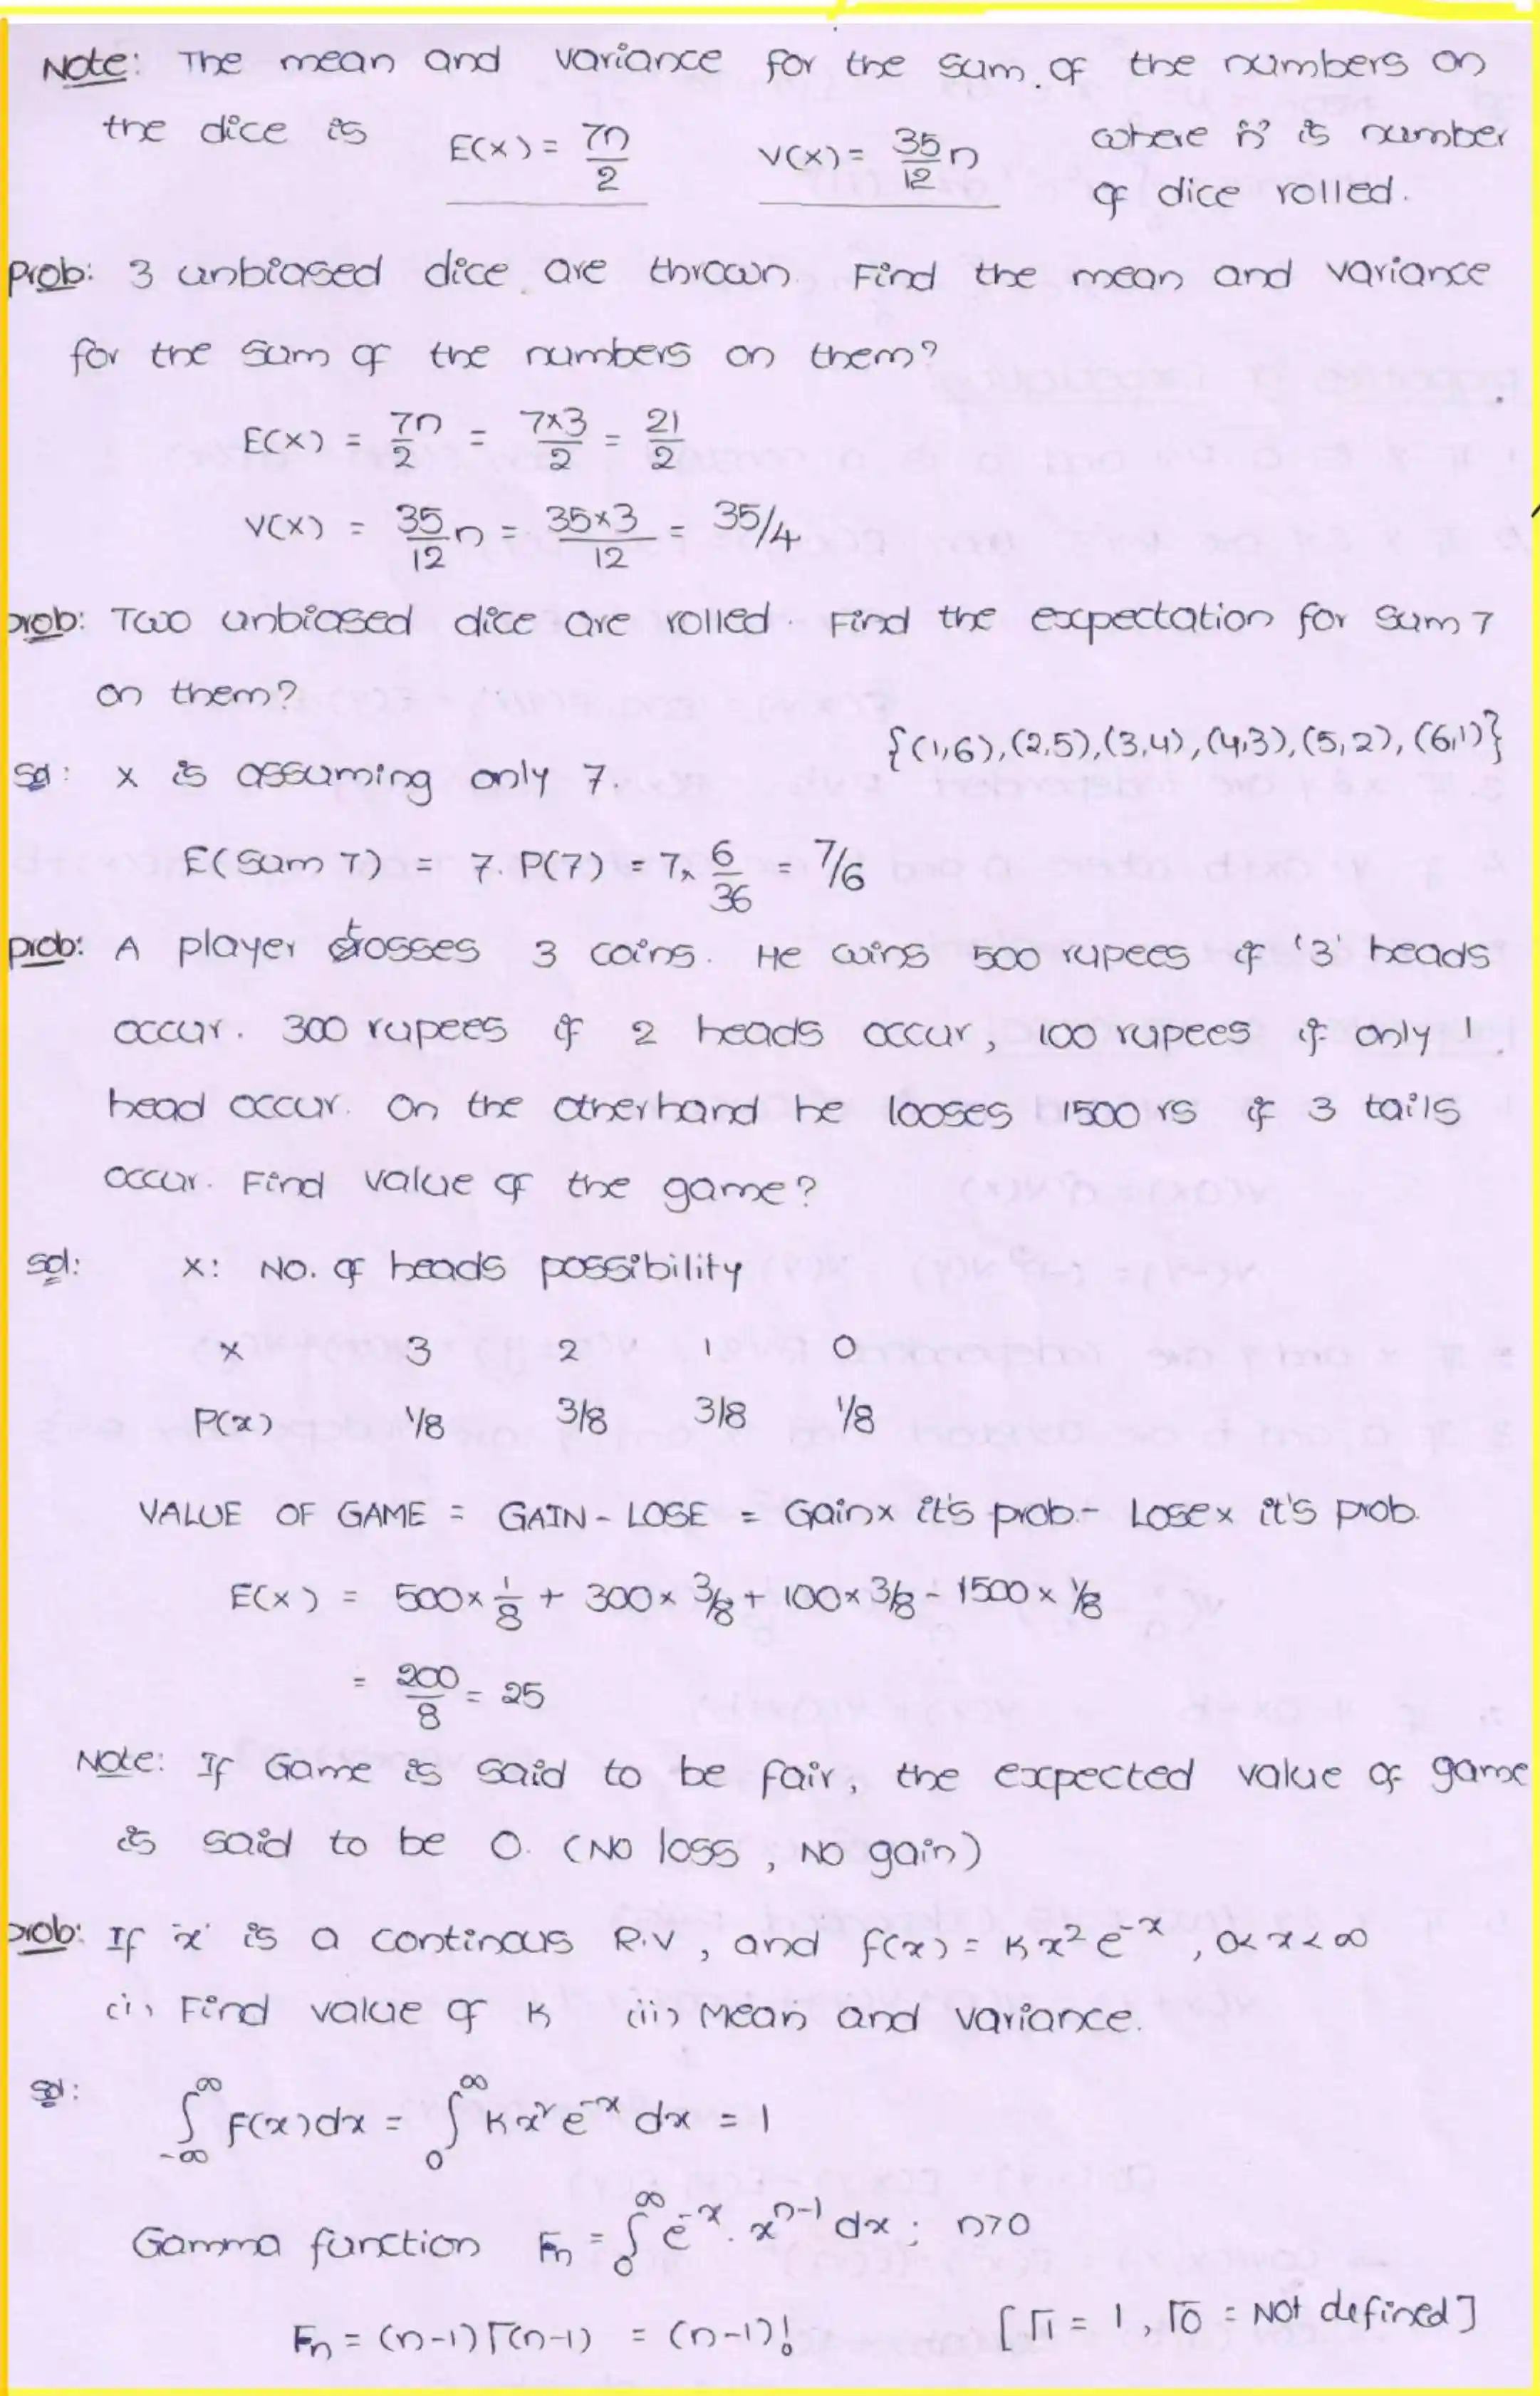 Note: The mean and variance for the sum of the numbers on
the dice is E(x) = 7n/2 V(x) = 35/12 n where 'n' is number
of dice rolled.
Prob: 3 unbiased dice are thrown. Find the mean and variance
for the sum of the numbers on them?
E(x) = 7n/2 = 7×3/2 = 21/2
V(x) = 35/12 n = 35×3/12 = 35/4
prob: Two unbiased dice are rolled. Find the expectation for sum 7
on them?
{(1,6),(2,5),(3,4),(4,3),(5,2),(6,1)}
Sol: x is assuming only 7.
E(Sum 7) = 7. P(7) = 7× 6/36 = 7/6
prob: A player tosses 3 coins. He wins 500 rupees if '3' heads
occur. 300 rupees if 2 heads occur, 100 rupees if only 1
head occur. On the otherhand he looses 1500 rs if 3 tails
occur. Find value of the game?
sol: x: No. of heads possibility
x 3 2 1 0
P(x) 1/8 3/8 3/8 1/8
VALUE OF GAME = GAIN - LOSE = Gain× it's prob - Lose× it's prob.
E(x) = 500× 1/8 + 300× 3/8 + 100× 3/8 - 1500× 1/8
= 200/8 = 25
Note: If Game is said to be fair, the expected value of game
is said to be 0. (No loss, No gain)
prob: If 'x' is a continous R.V, and f(x) = Kx² e^-x, 0<x<∞
(i) Find value of K (ii) Mean and variance.
Sol: ∫_-∞^∞ f(x)dx = ∫_0^∞ Kx² e^-x dx = 1
Gamma function Γn = ∫_0^∞ e^-x . x^n-1 dx ; n>0
Γn = (n-1)Γ(n-1) = (n-1)! [Γ1 = 1, Γ0 = Not defined]